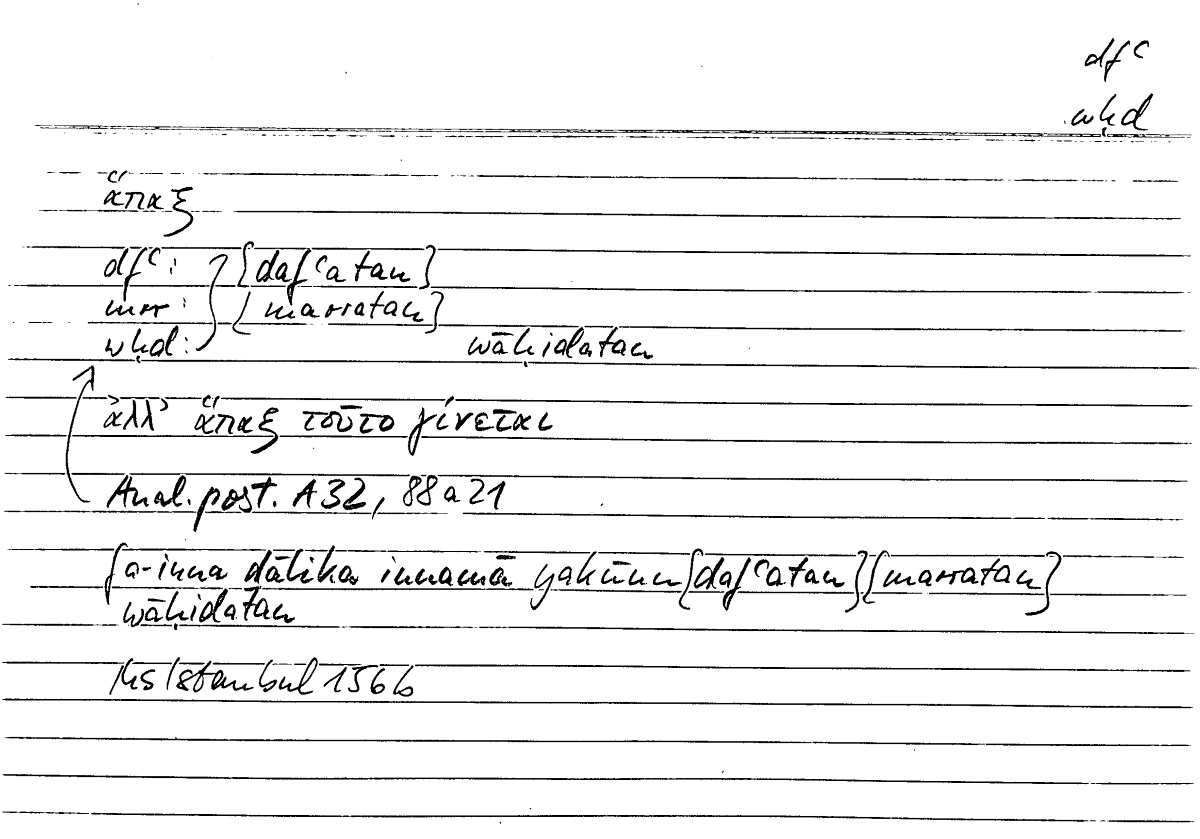 dfʿ
wḥd
ἅπαξ
dfʿ: [dafʿatan]
mrr: [marratan]
wḥd: wāḥidatan
ἀλλ’ ἅπαξ τοῦτο γίνεται
Anal. post. A 32, 88 a 21
fa-inna ḏālika innamā yakūnu [dafʿatan] [marratan]
wāḥidatan
Ms Istanbul 156b